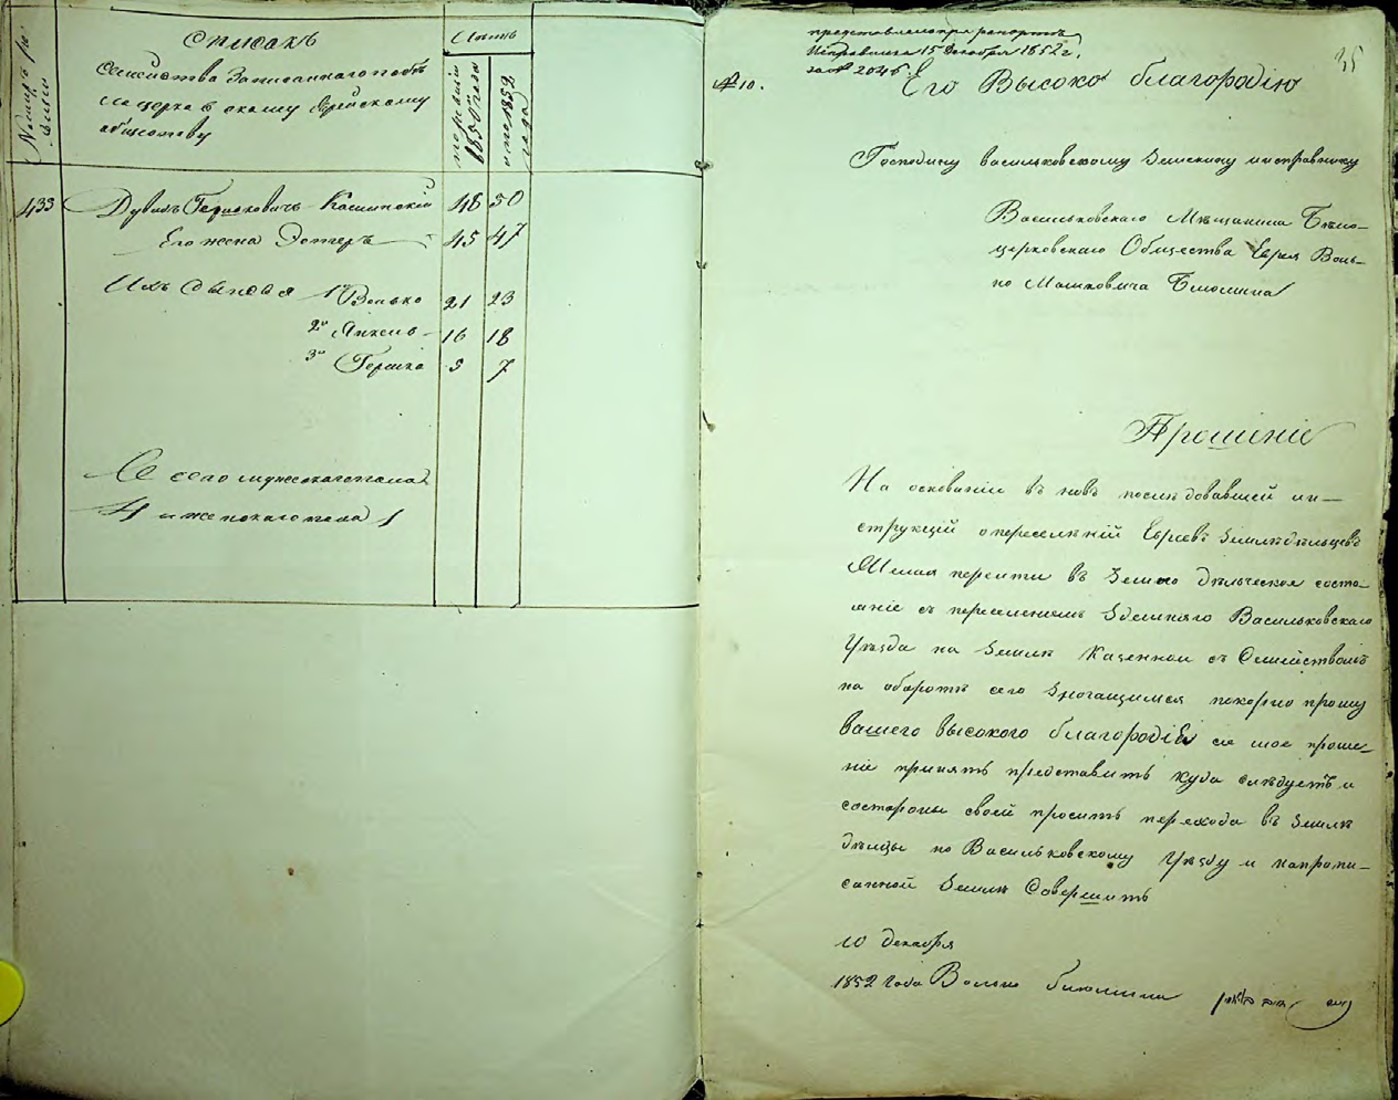 Списокъ
Семейства Записаннаго по бѣ
лоцеркѣвскому Еврейскому
обществу
Номеръ ре
визіи
Лѣта
по ревизіи
1850 года
1852
года
433 Дувидъ Гершковичъ Кошинскій 48 50
Его жена Эстеръ 45 47
Ихъ сыновья 1й Волько 21 23
2й Янкель 16 18
3й Гершко 5 7
Всего мужескаго пола
4 и женскаго пола 1
представлено при рапортѣ
Исправника 15 декабря 1852 г.
за № 2046.
35
№ 10.
Его Высоко благородію
Господину васильковскому Земскому исправнику
Васильковскаго Мѣщанина Бѣло-
церковскаго Общества Еврея Воль-
ко Мошковича
Прошеніе
На основаніи въ новѣ последовавшей ин-
струкцій о переселѣній Евреевъ Земледѣльцевъ
Желая перейти въ Земле дѣльческое состо-
яніе съ переселеніемъ Здешняго Васильковскаго
Уѣзда на Землѣ Казенной съ Семействомъ
на оборотѣ сего Значащимся покорно прошу
вашего высокого благородія сіе мое проше-
ніе принять представить куда слѣдуетъ и
состороны своей просить перехода въ Землѣ
дѣльцы по Васильковскому Уѣзду и
санной Землѣ Совершить
10 декабря
1852 Года Волько